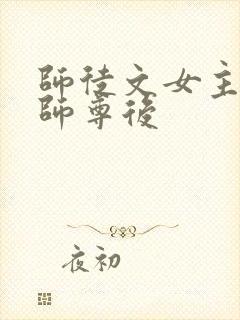 師徒文女主
師尊後
夜初